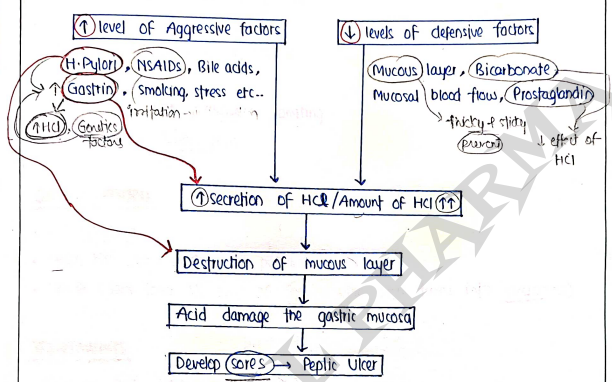 ↑ level of Aggressive factors
↓ levels of defensive factors
H·Pylori, NSAIDS, Bile acids,
↑ Gastrin, smoking, stress etc..
irritation
↑HCl, Genetics
factors
Mucous layer, Bicarbonate,
Mucosal blood flow, Prostaglandin
sticky
prevent
↓ effect of
HCl
↑ Secretion of HCl/Amount of HCl ↑↑
Destruction of mucous layer
Acid damage the gastric mucosa
Develop sores → Peptic Ulcer
PHARMA